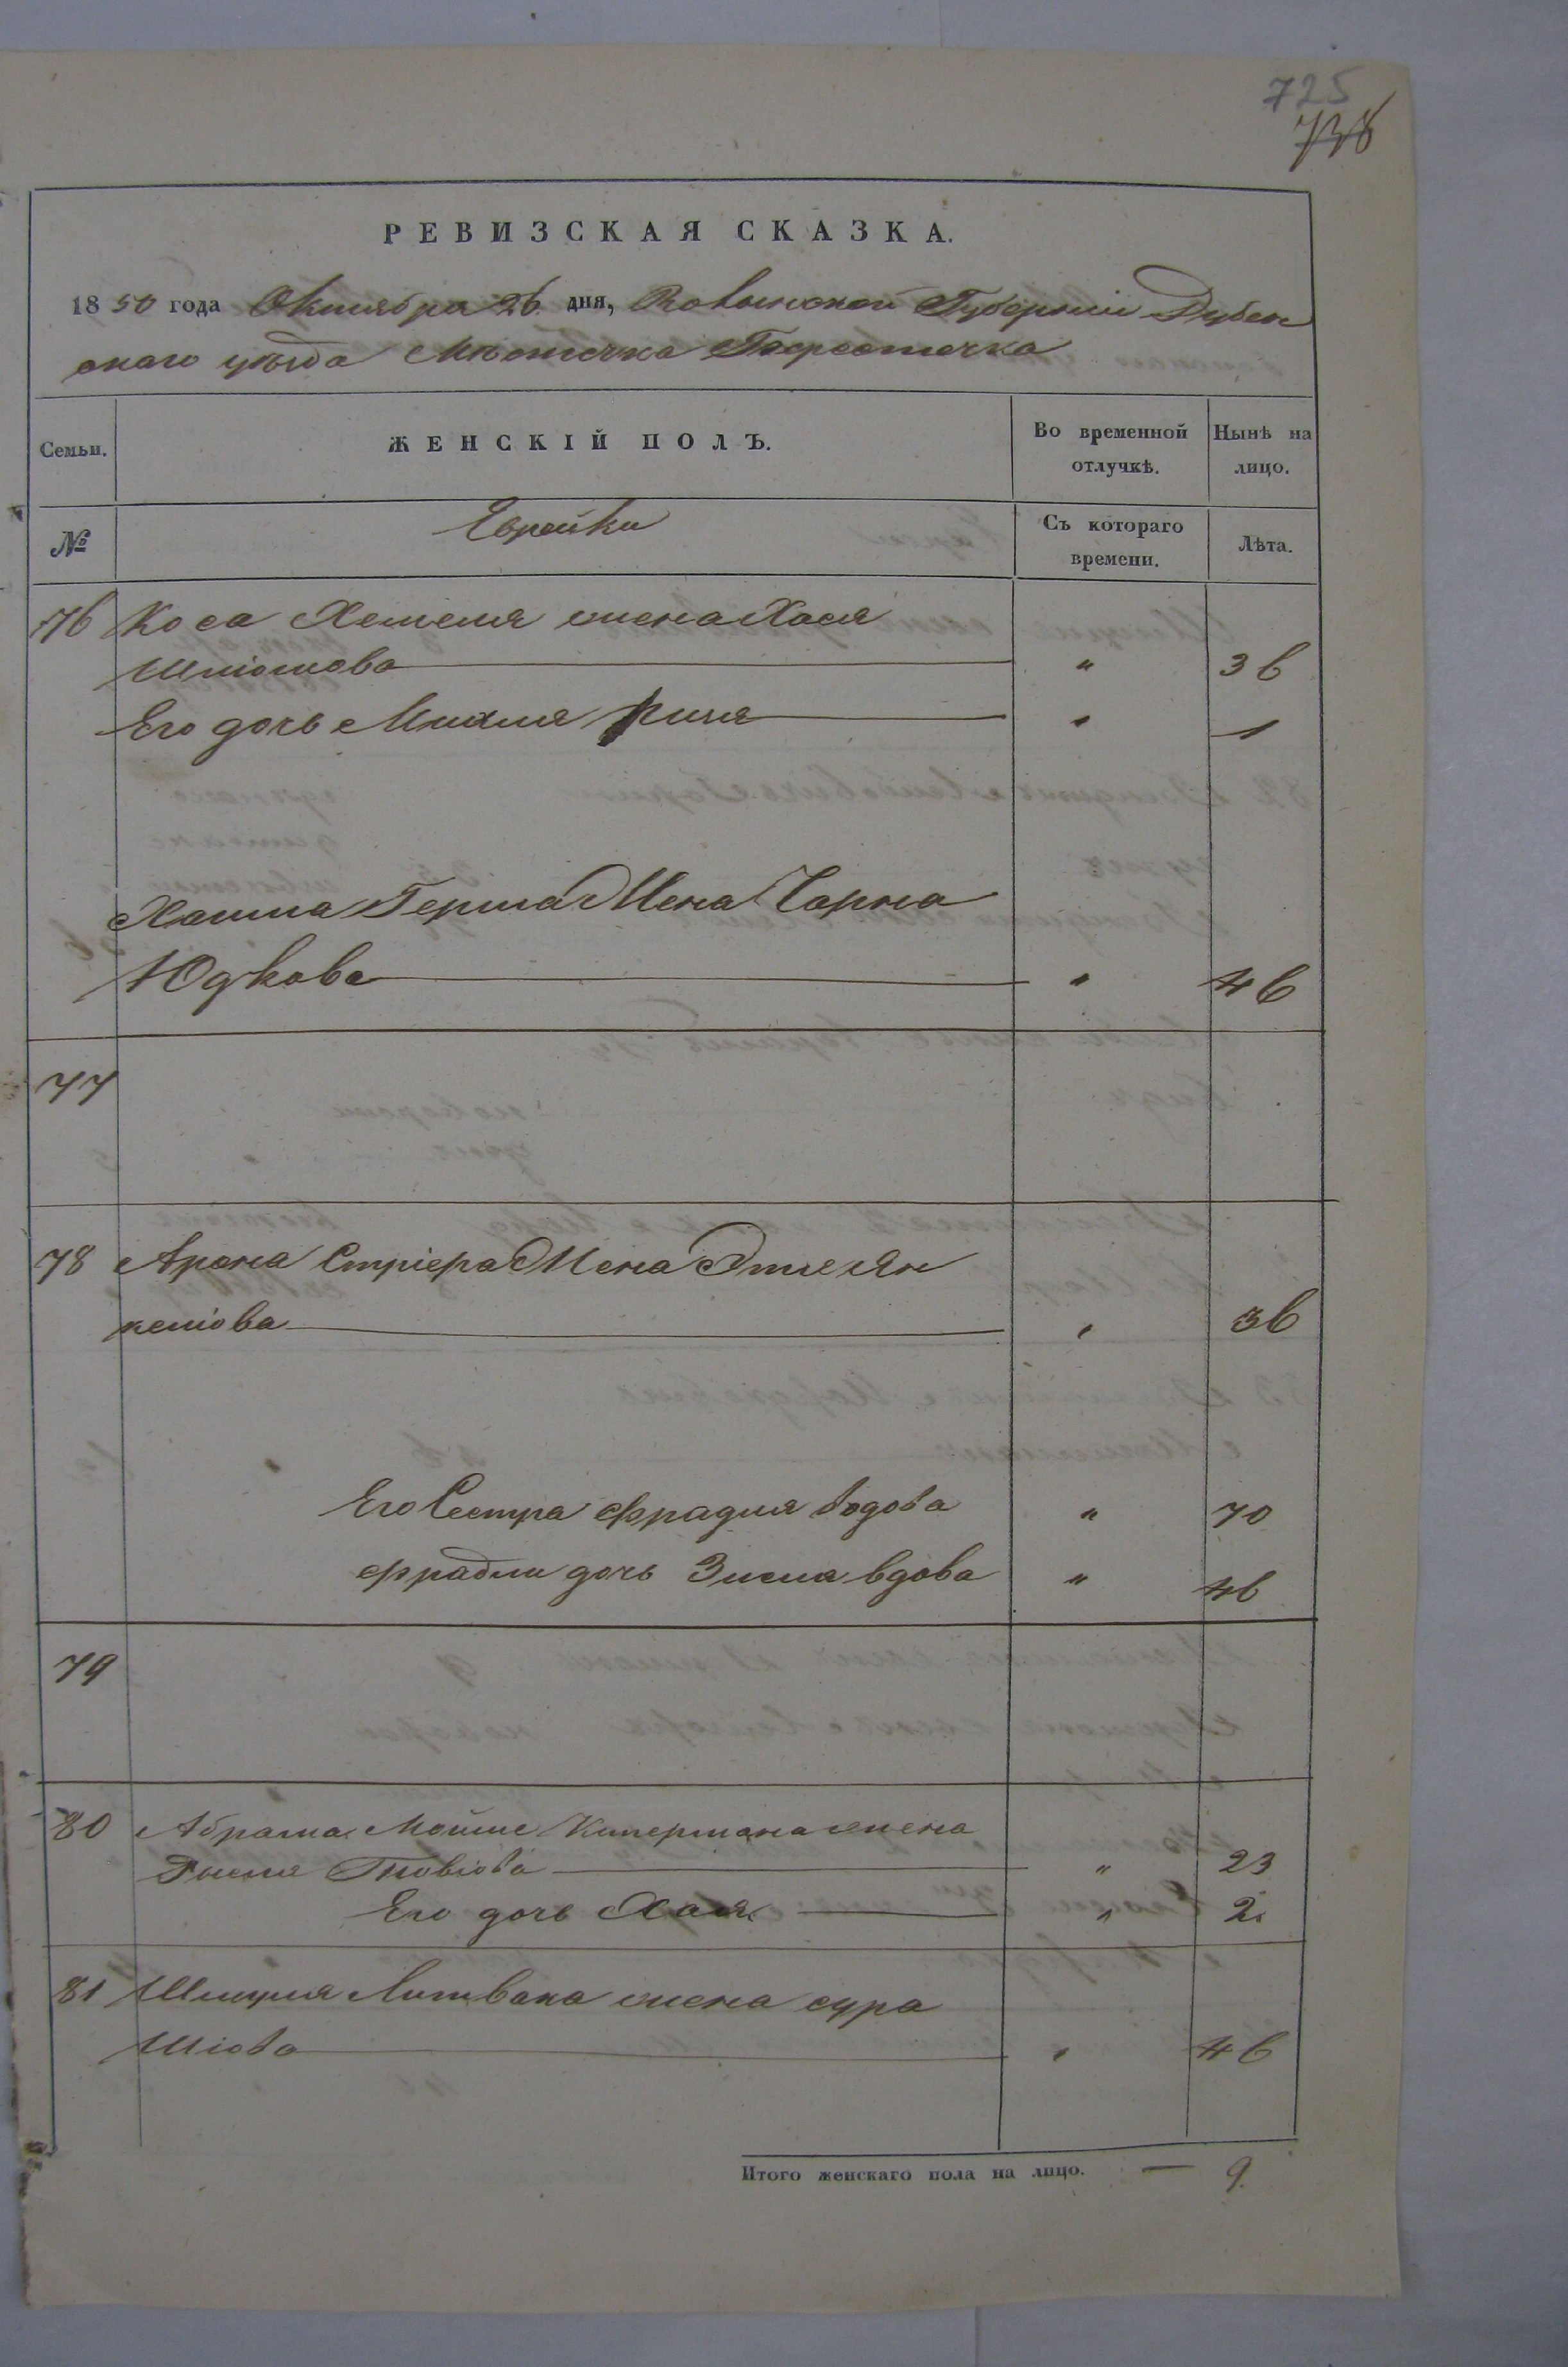 725
738
РЕВИЗСКАЯ СКАЗКА.
1850 года Октября 26 дня, Волынской Губерніи Дубен
скаго уѣзда Мѣстечка Берестечка
Семьи.
ЖЕНСКІЙ ПОЛЪ.
Во временной отлучкѣ.
Нынѣ на лицо.
№
Еврейки
Съ котораго времени.
Лѣта.
76 Коса жена Хася
Шліомова " 36
Его дочь Рися " 1
Герша Жена Чарна
Юдкова " 46
77
78 Арона Стріера Жена Этля Ян
келіова " 36
Его Сестра Фрадля вдова " 70
Фрадли дочь Зисля вдова " 46
79
80 Абрама Мойше Кипермана жена
Товіова " 23
Его дочь Хася " 2
81 Шмуля Литвака жена сура
Шіова " 46
Итого женскаго пола на лицо. — 9.